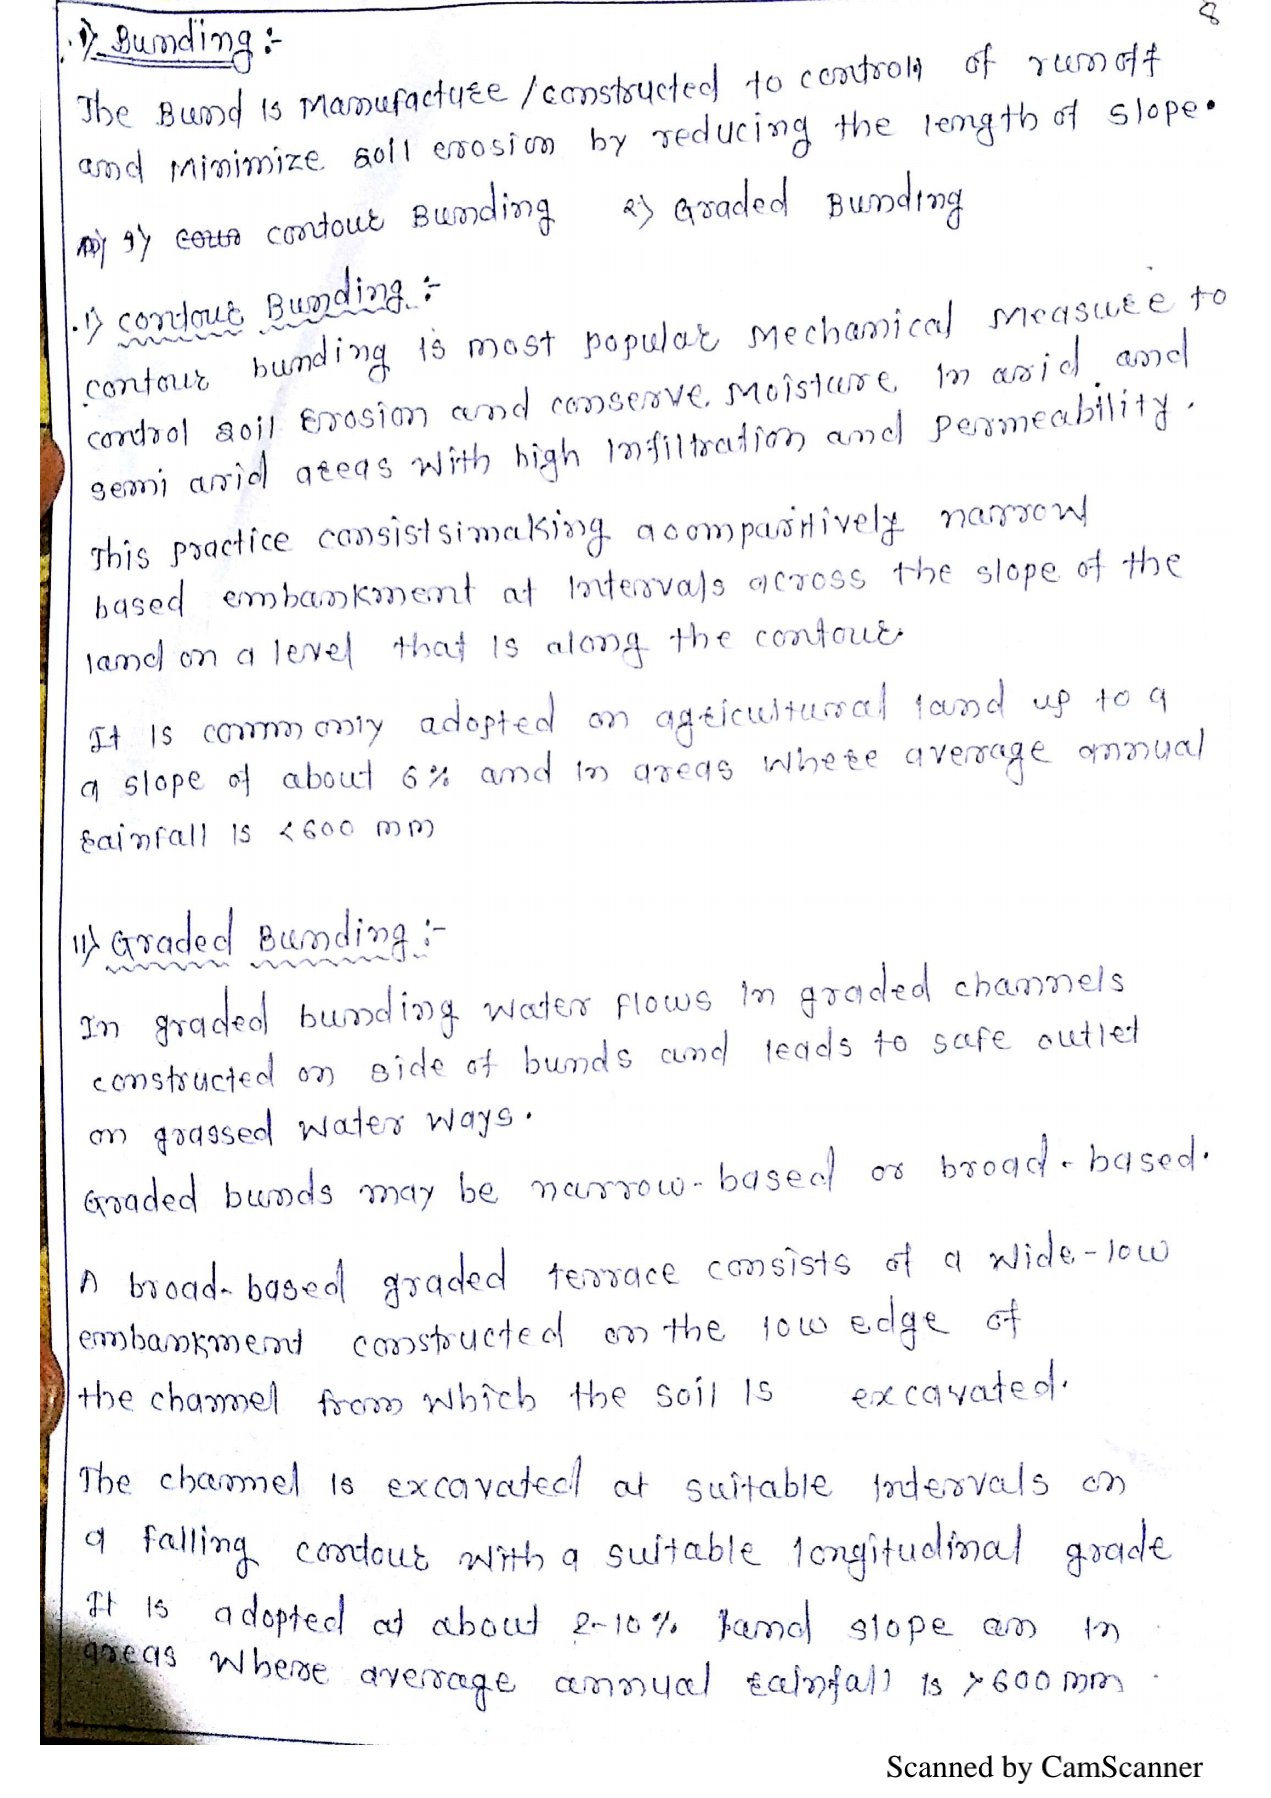 8
1) Bunding :-
The Bund is Manufacture / constructed to control of runoff
and Minimize soil erosion by reducing the length of slope.
1) contour Bunding 2) Graded Bunding
1) contour Bunding :-
contour bunding is most popular Mechanical Measure to
control soil Erosion and conserve. Moisture. In arid and
semi arid areas with high Infiltration and permeability.
This practice consistsimaking a comparitively narrow
based embankment at Intervals across the slope of the
land on a level that is along the contour.
It is commonly adopted on agricultural land up to a
a slope of about 6% and in areas where average annual
rainfall is <600 mm
11) Graded Bunding :-
In graded bunding water flows in graded channels
constructed on side of bunds and leads to safe outlet
on grassed water ways.
Graded bunds may be narrow-based or broad-based.
A broad-based graded terrace consists of a wide-low
embankment constructed on the low edge of
the channel from which the soil is excavated.
The channel is excavated at suitable Intervals on
a falling contour with a suitable longitudinal grade
It is adopted at about 2-10% land slope an in
areas where average annual rainfall is >600mm.
Scanned by CamScanner